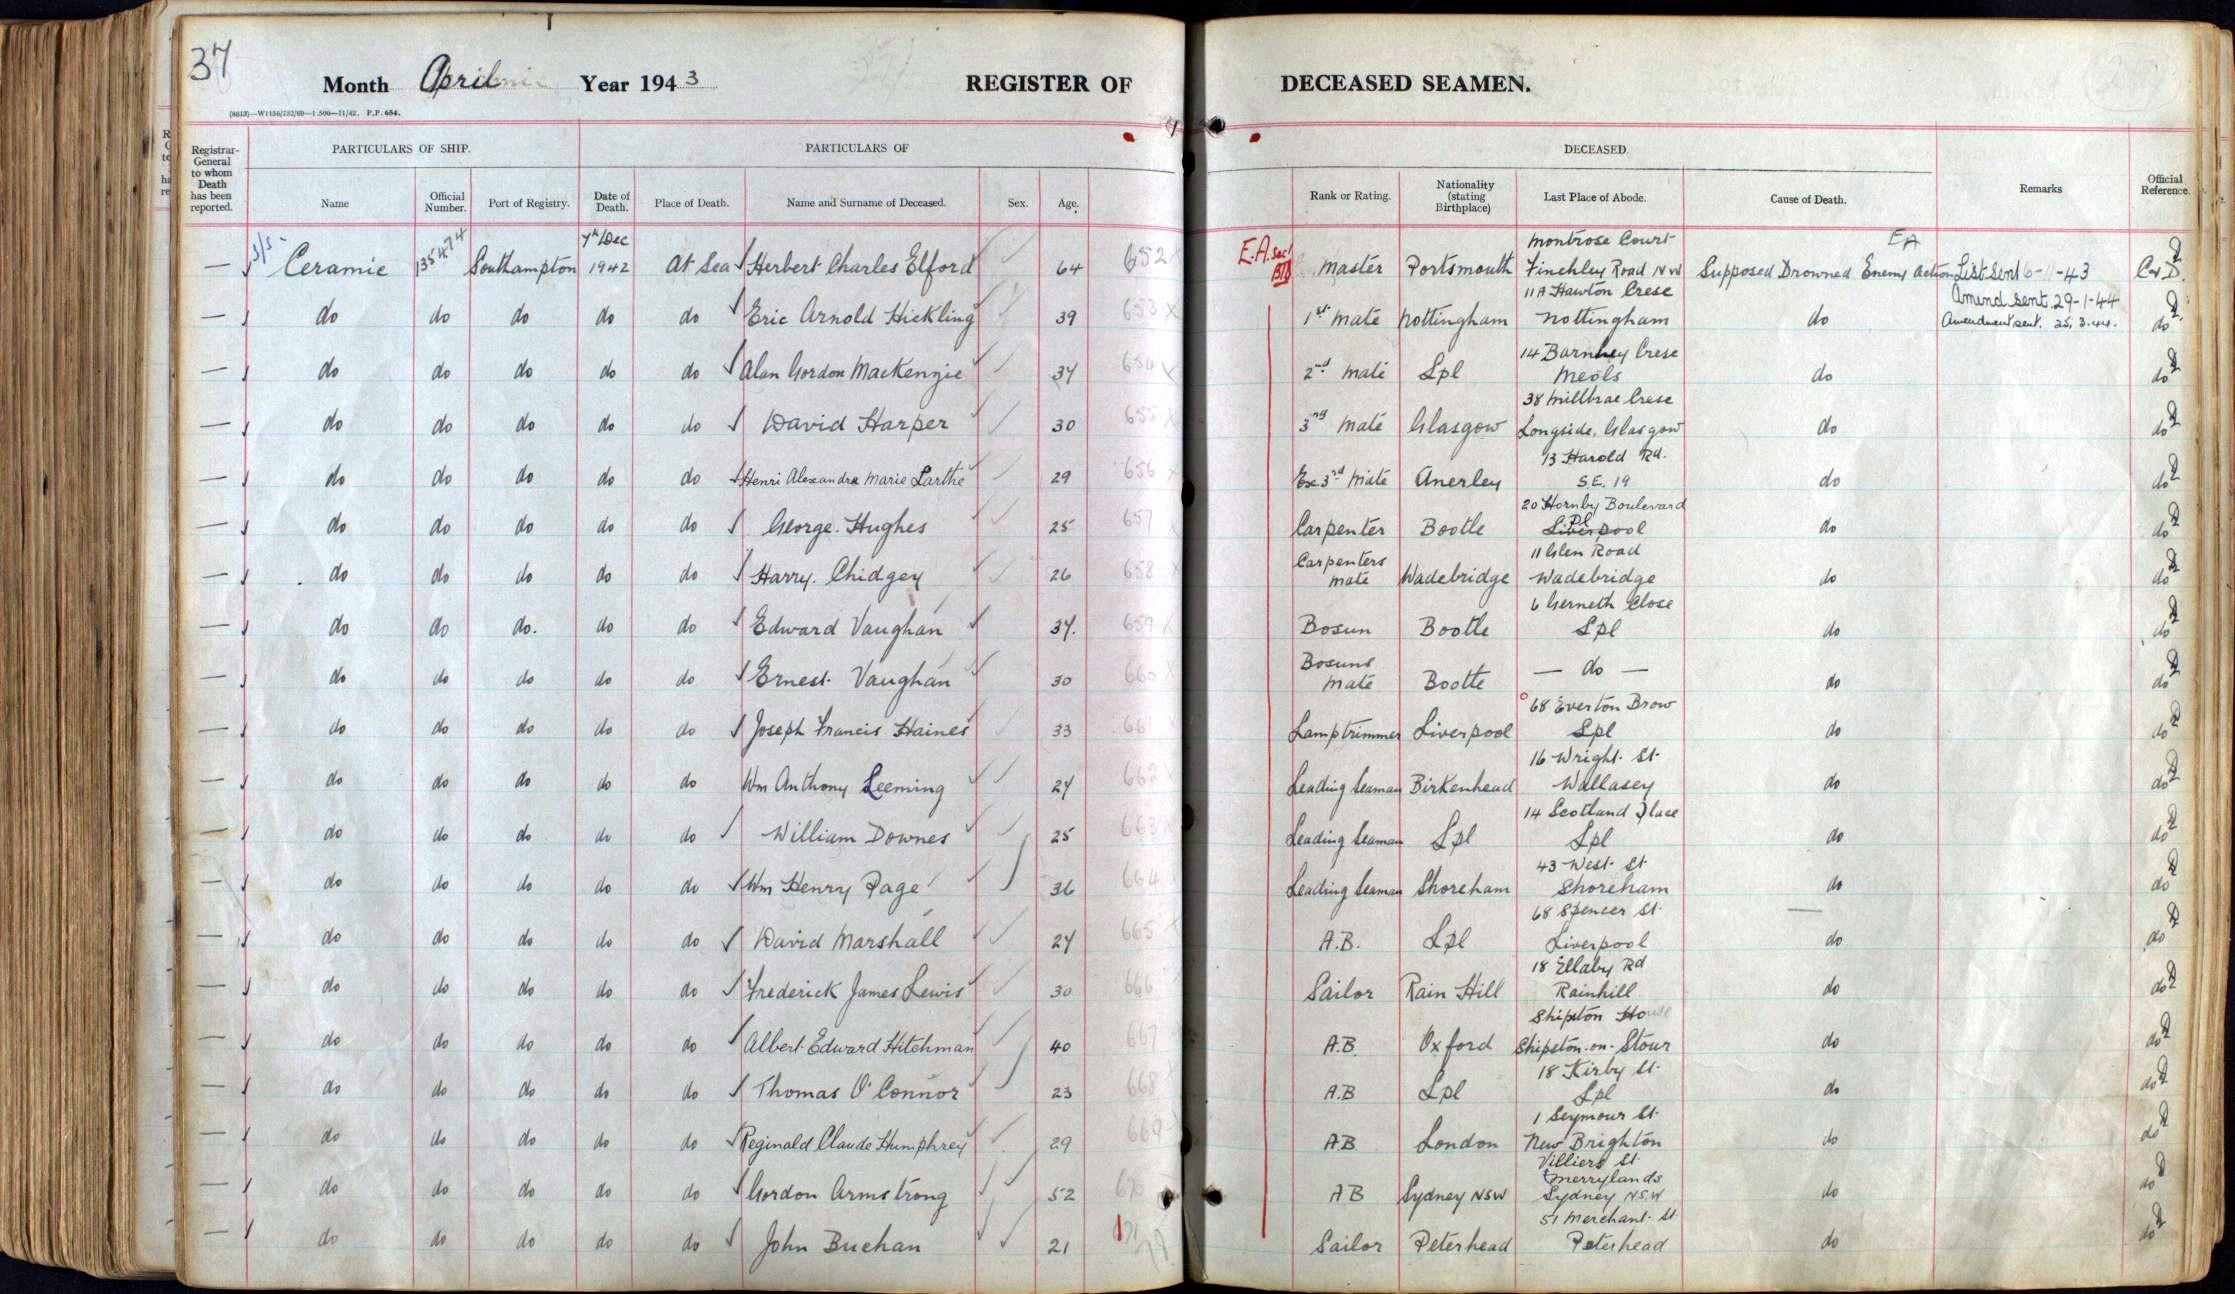 37
Month April Year 1943 REGISTER OF DECEASED SEAMEN.
(8813)—W1156/782/69—1,500—11/42. P.P. 654.
Registrar-General to whom Death has been reported.
PARTICULARS OF SHIP. PARTICULARS OF DECEASED.
Name Official Number. Port of Registry. Date of Death. Place of Death. Name and Surname of Deceased. Sex. Age. Rank or Rating. Nationality (stating Birthplace) Last Place of Abode. Cause of Death. Remarks Official Reference.
7th Dec Montrose Court EA
— s/s Ceramic 135474 Southampton 1942 At Sea Herbert Charles Elford 64 652 E.A. Master Portsmouth Finchley Road NW Supposed Drowned Enemy Action List sent 6-11-43 C & D.
11A Hawton Cresc Amend sent 29-1-44
— do do do do do Eric Arnold Hickling 39 653 1st Mate Nottingham Nottingham do Amendment sent. 25.3.44. do
14 Barnhey Cresc
— do do do do do Alan Gordon MacKenzie 34 654 2nd Mate Lpl Meols do do
38 Millbrae Cresc
— do do do do do David Harper 30 655 3rd Mate Glasgow Longside, Glasgow do do
13 Harold Rd.
— do do do do do Henri Alexandre Marie Larthe 29 656 Ex 3rd Mate Anerley S.E. 19 do do
20 Hornby Boulevard
— do do do do do George Hughes 25 657 Carpenter Bootle Liverpool do do
Carpenters 11 Glen Road
— do do do do do Harry Chidgey 26 658 Mate Wadebridge Wadebridge do do
6 Gerneth Close
— do do do do do Edward Vaughan 34. 659 Bosun Bootle Lpl do do
Bosuns
— do do do do do Ernest Vaughan 30 660 Mate Bootle — do — do do
68 Everton Brow
— do do do do do Joseph Francis Haines 33 661 Lamptrimmer Liverpool Lpl do do
16 Wright St
— do do do do do Wm Anthony Leeming 24 662 Leading Seaman Birkenhead Wallasey do do
14 Scotland Place
— do do do do do William Downes 25 663 Leading Seaman Lpl Lpl do do
43 West St
— do do do do do Wm Henry Page 36 664 Leading Seaman Shoreham Shoreham do do
68 Spencer St
— do do do do do David Marshall 24 665 A.B. Lpl Liverpool do do
18 Ellaby Rd
— do do do do do Frederick James Lewis 30 666 Sailor Rain Hill Rainhill do do
Shipston House
— do do do do do Albert Edward Hitchman 40 667 A.B. Oxford Shipston-on-Stour do do
18 Kirby St
— do do do do do Thomas O'Connor 23 668 A.B Lpl Lpl do do
1 Seymour St
— do do do do do Reginald Claude Humphrey 29 669 A.B London New Brighton do do
Villiers St
Merrylands
— do do do do do Gordon Armstrong 52 670 A B Sydney NSW Sydney NSW do do
51 Merchant St
— do do do do do John Buchan 21 Sailor Peterhead Peterhead do do